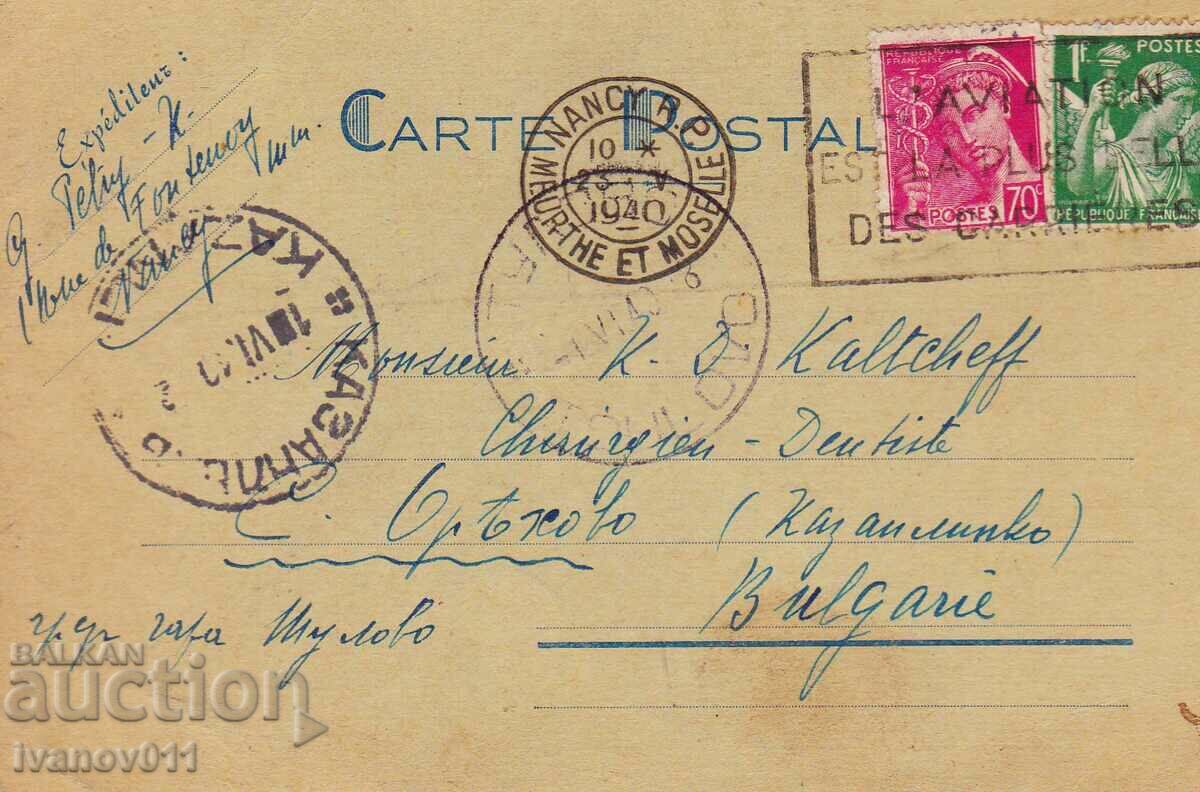 Expéditeur:
Petry - K.
1 rue de Fontenoy
Nancy
CARTE POSTALE
NANCY R.P.
10 X
23 V
1940
MEURTHE ET MOSELLE
L'AVIATION
EST LA PLUS BELLE
DES CARRIERES
REPUBLIQUE FRANÇAISE
70c
POSTES
1F POSTES
RÉPUBLIQUE FRANÇAISE
VI 40
Monsieur K. D Kaltcheff
Chirurgien - Dentiste
С. Орѣхово (Казанлъшко)
Bulgarie
гара Тулово
BALKAN
auction
ivanov011